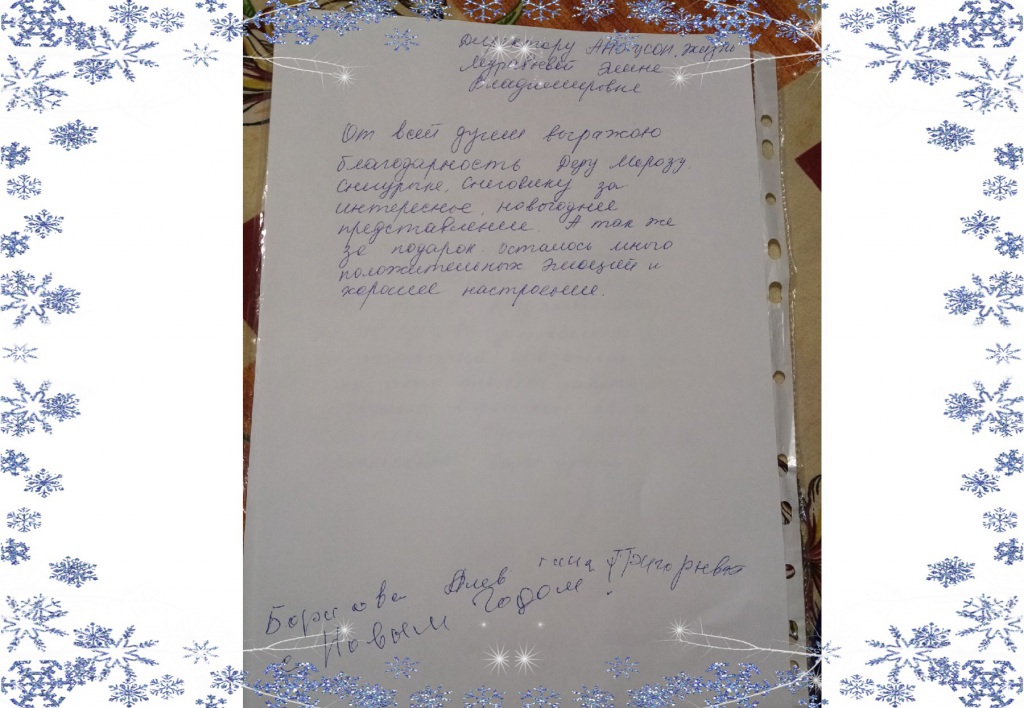 Директору АНО УСОН, Жизнь
Муравьевой Элине
Владимировне
От всей души выражаю
благодарность Деду Морозу,
Снигурыне, Снеговику за
интересное, новогоднее
представление. А так же
за подарок. осталось много
положительных эмоций и
хорошее настроение.
Григорьевна
с Новым Годом!